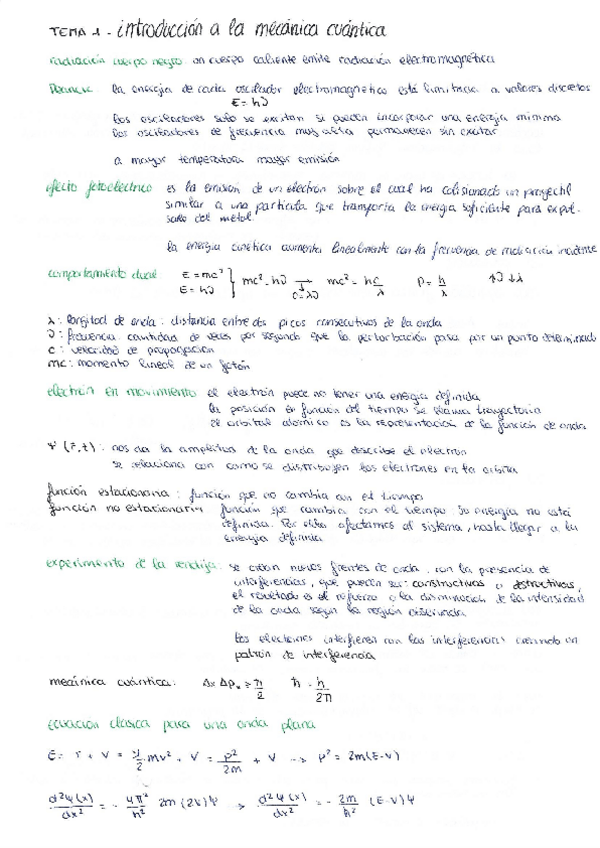 TEMA 1 - introducción a la mecánica cuántica
radiación cuerpo negro un cuerpo caliente emite radiación electromagnética
la energía de cada oscilador electromagnético está limitada a valores discretos
E = hν
los osciladores solo se excitan si pueden incorporar una energía mínima
los osciladores de frecuencia muy alta permanecen sin excitar
a mayor temperatura mayor emisión
efecto fotoeléctrico es la emisión de un electrón sobre el cual ha colisionado un proyectil
similar a una partícula que transporta la energía suficiente para expul-
sarlo del metal
la energía cinética aumenta linealmente con la frecuencia de radiación incidente
comportamiento dual E = mc² } mc² = hν → mc² = hc/λ P = h/λ ↑ν ↓λ
E = hν c = λν
λ: longitud de onda: distancia entre dos picos consecutivos de la onda
ν: frecuencia: cantidad de veces por segundo que la perturbación pasa por un punto determinado
c: velocidad de propagación
mc: momento lineal de un fotón
electrón en movimiento el electrón puede no tener una energía definida
la posición en función del tiempo se llama trayectoria
el orbital atómico es la representación de la función de onda
Ψ (r,t): nos da la amplitud de la onda que describe el electrón
se relaciona con como se distribuyen los electrones en la órbita
función estacionaria: función que no cambia con el tiempo
función no estacionaria función que cambia con el tiempo. Su energía no está
definida. afectamos al sistema, hasta llegar a la
energía definida
experimento de la rendija: se crean nuevos frentes de onda, con la presencia de
interferencias, que pueden ser: constructivas o destructivas,
el resultado es el refuerzo o la disminución de la intensidad
de la onda según la región observada
los electrones interfieren con las interferencias creando un
patrón de interferencia
mecánica cuántica: Δx Δpx ≥ ħ/2 ħ = h/2π
ecuación clásica para una onda plana
E = T + V = 1/2 mv² + V = p²/2m + V → p² = 2m(E-V)
d²Ψ(x)/dx² = - 4π²/h² 2m Ψ → d²Ψ(x)/dx² = - 2m/ħ² (E-V)Ψ